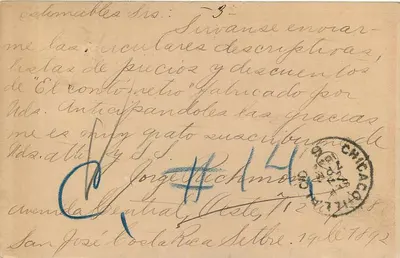 Estimables Srs: -3-
Sirvanse enviar-
me las circulares descriptivas,
listas de precios y descuentos
de "El fabricado por
Uds. Anticipandoles las gracias
me es muy grato suscribirme de
Uds. atto. y S. S.
Jorge
#14,
Avenida Central, Oeste, 12
San José Costa Rica Setbre. 19 de 1892
CHICAGO, ILL.